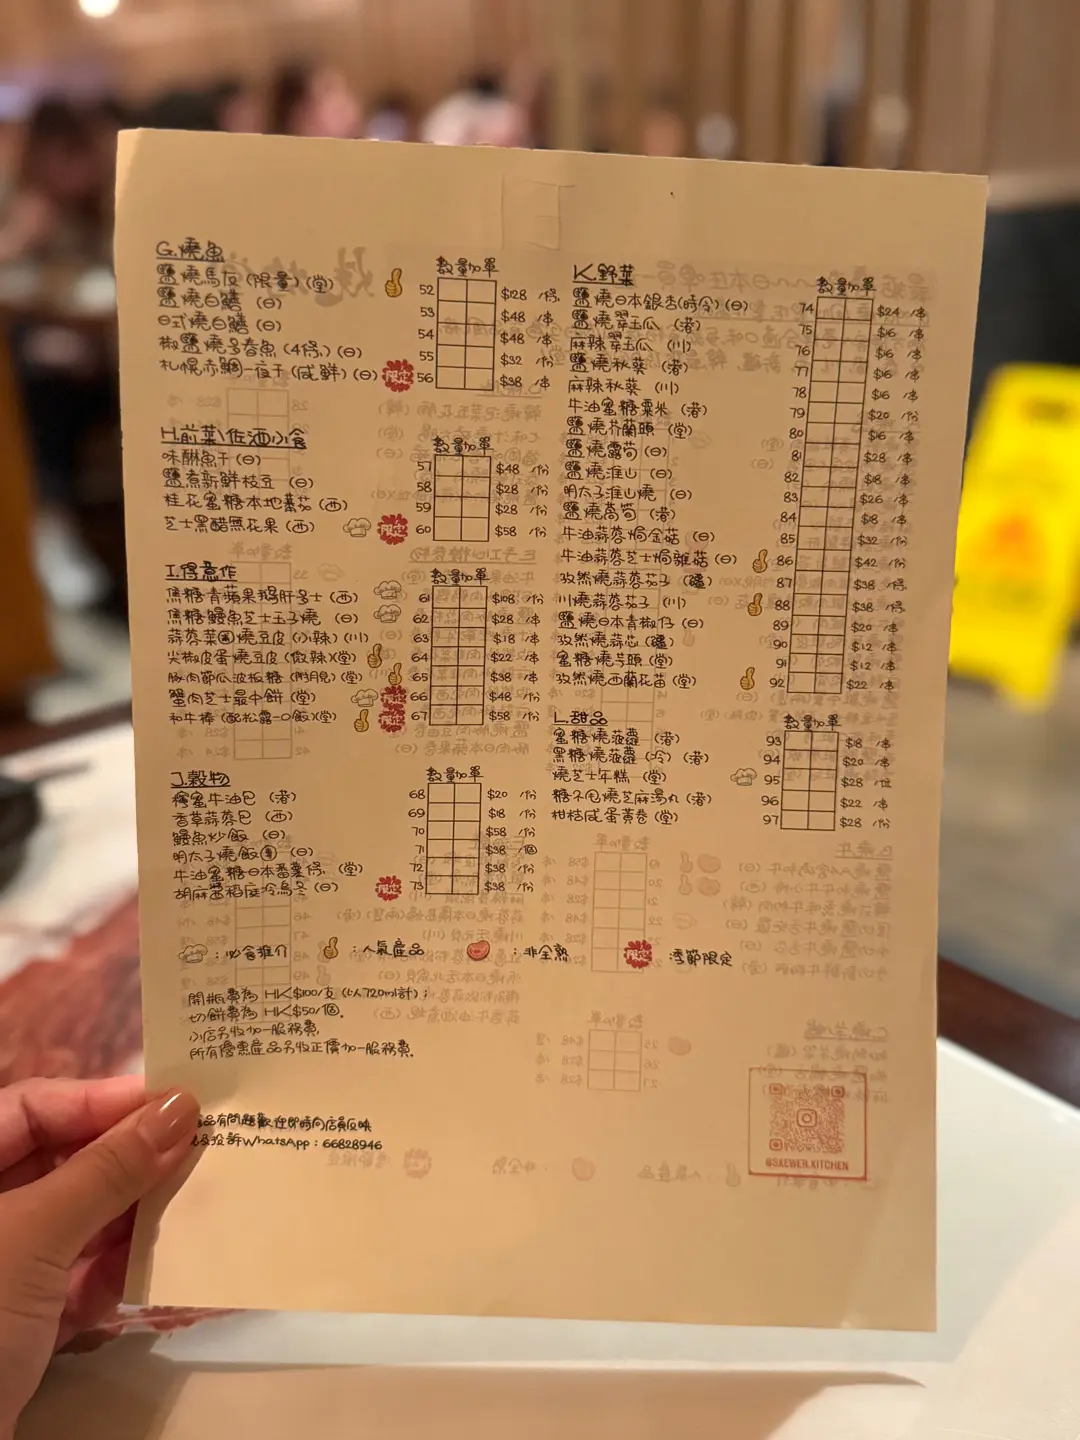 G.燒魚
數量加單
鹽燒馬友(限量)(堂) 52 $128 /條
鹽燒白鱔 (日) 53 $48 /串
日式燒白鱔 (日) 54 $48 /串
椒鹽燒多春魚(4條)(日) 55 $32 /份
札幌赤鯛一夜干(咸鮮)(日) 限定 56 $38 /串
H.前菜\佐酒小食
數量加單
味醂魚干(日) 57 $48 /份
鹽煮新鮮枝豆 (日) 58 $28 /份
桂花蜜糖本地蕃茄(西) 59 $28 /份
芝士黑醋無花果(西) 限定 60 $58 /份
I.得意作
數量加單
焦糖青蘋果鵝肝多士(西) 61 $108 /份
焦糖鰻魚芝士玉子燒 (日) 62 $28 /串
蒜蓉菜圃燒豆皮(小辣)(川) 63 $18 /串
尖椒皮蛋燒豆皮(微辣)(堂) 64 $22 /串
豚肉節瓜波板糖(附月見)(堂) 65 $38 /串
蟹肉芝士最中餅(堂) 限定 66 $48 /份
和牛棒(配松露一口飯)(堂) 限定 67 $58 /份
J.穀物
數量加單
檸蜜牛油包 (港) 68 $20 /份
香草蒜蓉包 (西) 69 $18 /份
鰻魚炒飯 (日) 70 $58 /份
明太子燒飯團 (日) 71 $38 /個
牛油蜜糖日本番薯條 (堂) 72 $38 /份
胡麻醬稻庭冷烏冬(日) 限定 73 $38 /份
K.野菜
數量加單
鹽燒日本銀杏(時令)(日) 74 $24 /串
鹽燒翠玉瓜 (港) 75 $16 /串
麻辣翠玉瓜 (川) 76 $16 /串
鹽燒秋葵 (港) 77 $16 /串
麻辣秋葵 (川) 78 $16 /串
牛油蜜糖粟米 (港) 79 $20 /份
鹽燒芥蘭頭 (堂) 80 $16 /串
鹽燒露筍 (日) 81 $28 /串
鹽燒淮山 (日) 82 $18 /串
明太子淮山燒 (日) 83 $26 /串
鹽燒萵筍 (港) 84 $18 /串
牛油蒜蓉焗金菇 (日) 85 $32 /份
牛油蒜蓉芝士焗雜菇 (日) 86 $42 /份
孜然燒蒜蓉茄子 (疆) 87 $38 /條
川燒蒜蓉茄子 (川) 88 $38 /條
鹽燒日本青椒仔 (日) 89 $20 /串
孜然燒蒜芯 (疆) 90 $12 /串
蜜糖燒芋頭 (堂) 91 $12 /串
孜然燒西蘭花苗 (堂) 92 $22 /串
L.甜品
數量加單
蜜糖燒菠蘿 (港) 93 $18 /串
黑糖燒菠蘿(冷) (港) 94 $20 /串
燒芝士年糕 (堂) 95 $28 /位
糖不甩燒芝麻湯丸(港) 96 $22 /串
柑桔咸蛋黃卷(堂) 97 $28 /份
:必食推介 :人氣產品 :非全熟 限定 :季節限定
開瓶費為 HK$100/支(以720ml計);
切餅費為 HK$50/個。
小店另收加一服務費,
所有優惠產品另收正價加一服務費。
品有問題歡迎即時向店員反映
及投訴WhatsApp:66828946
@SKEWER.KITCHEN